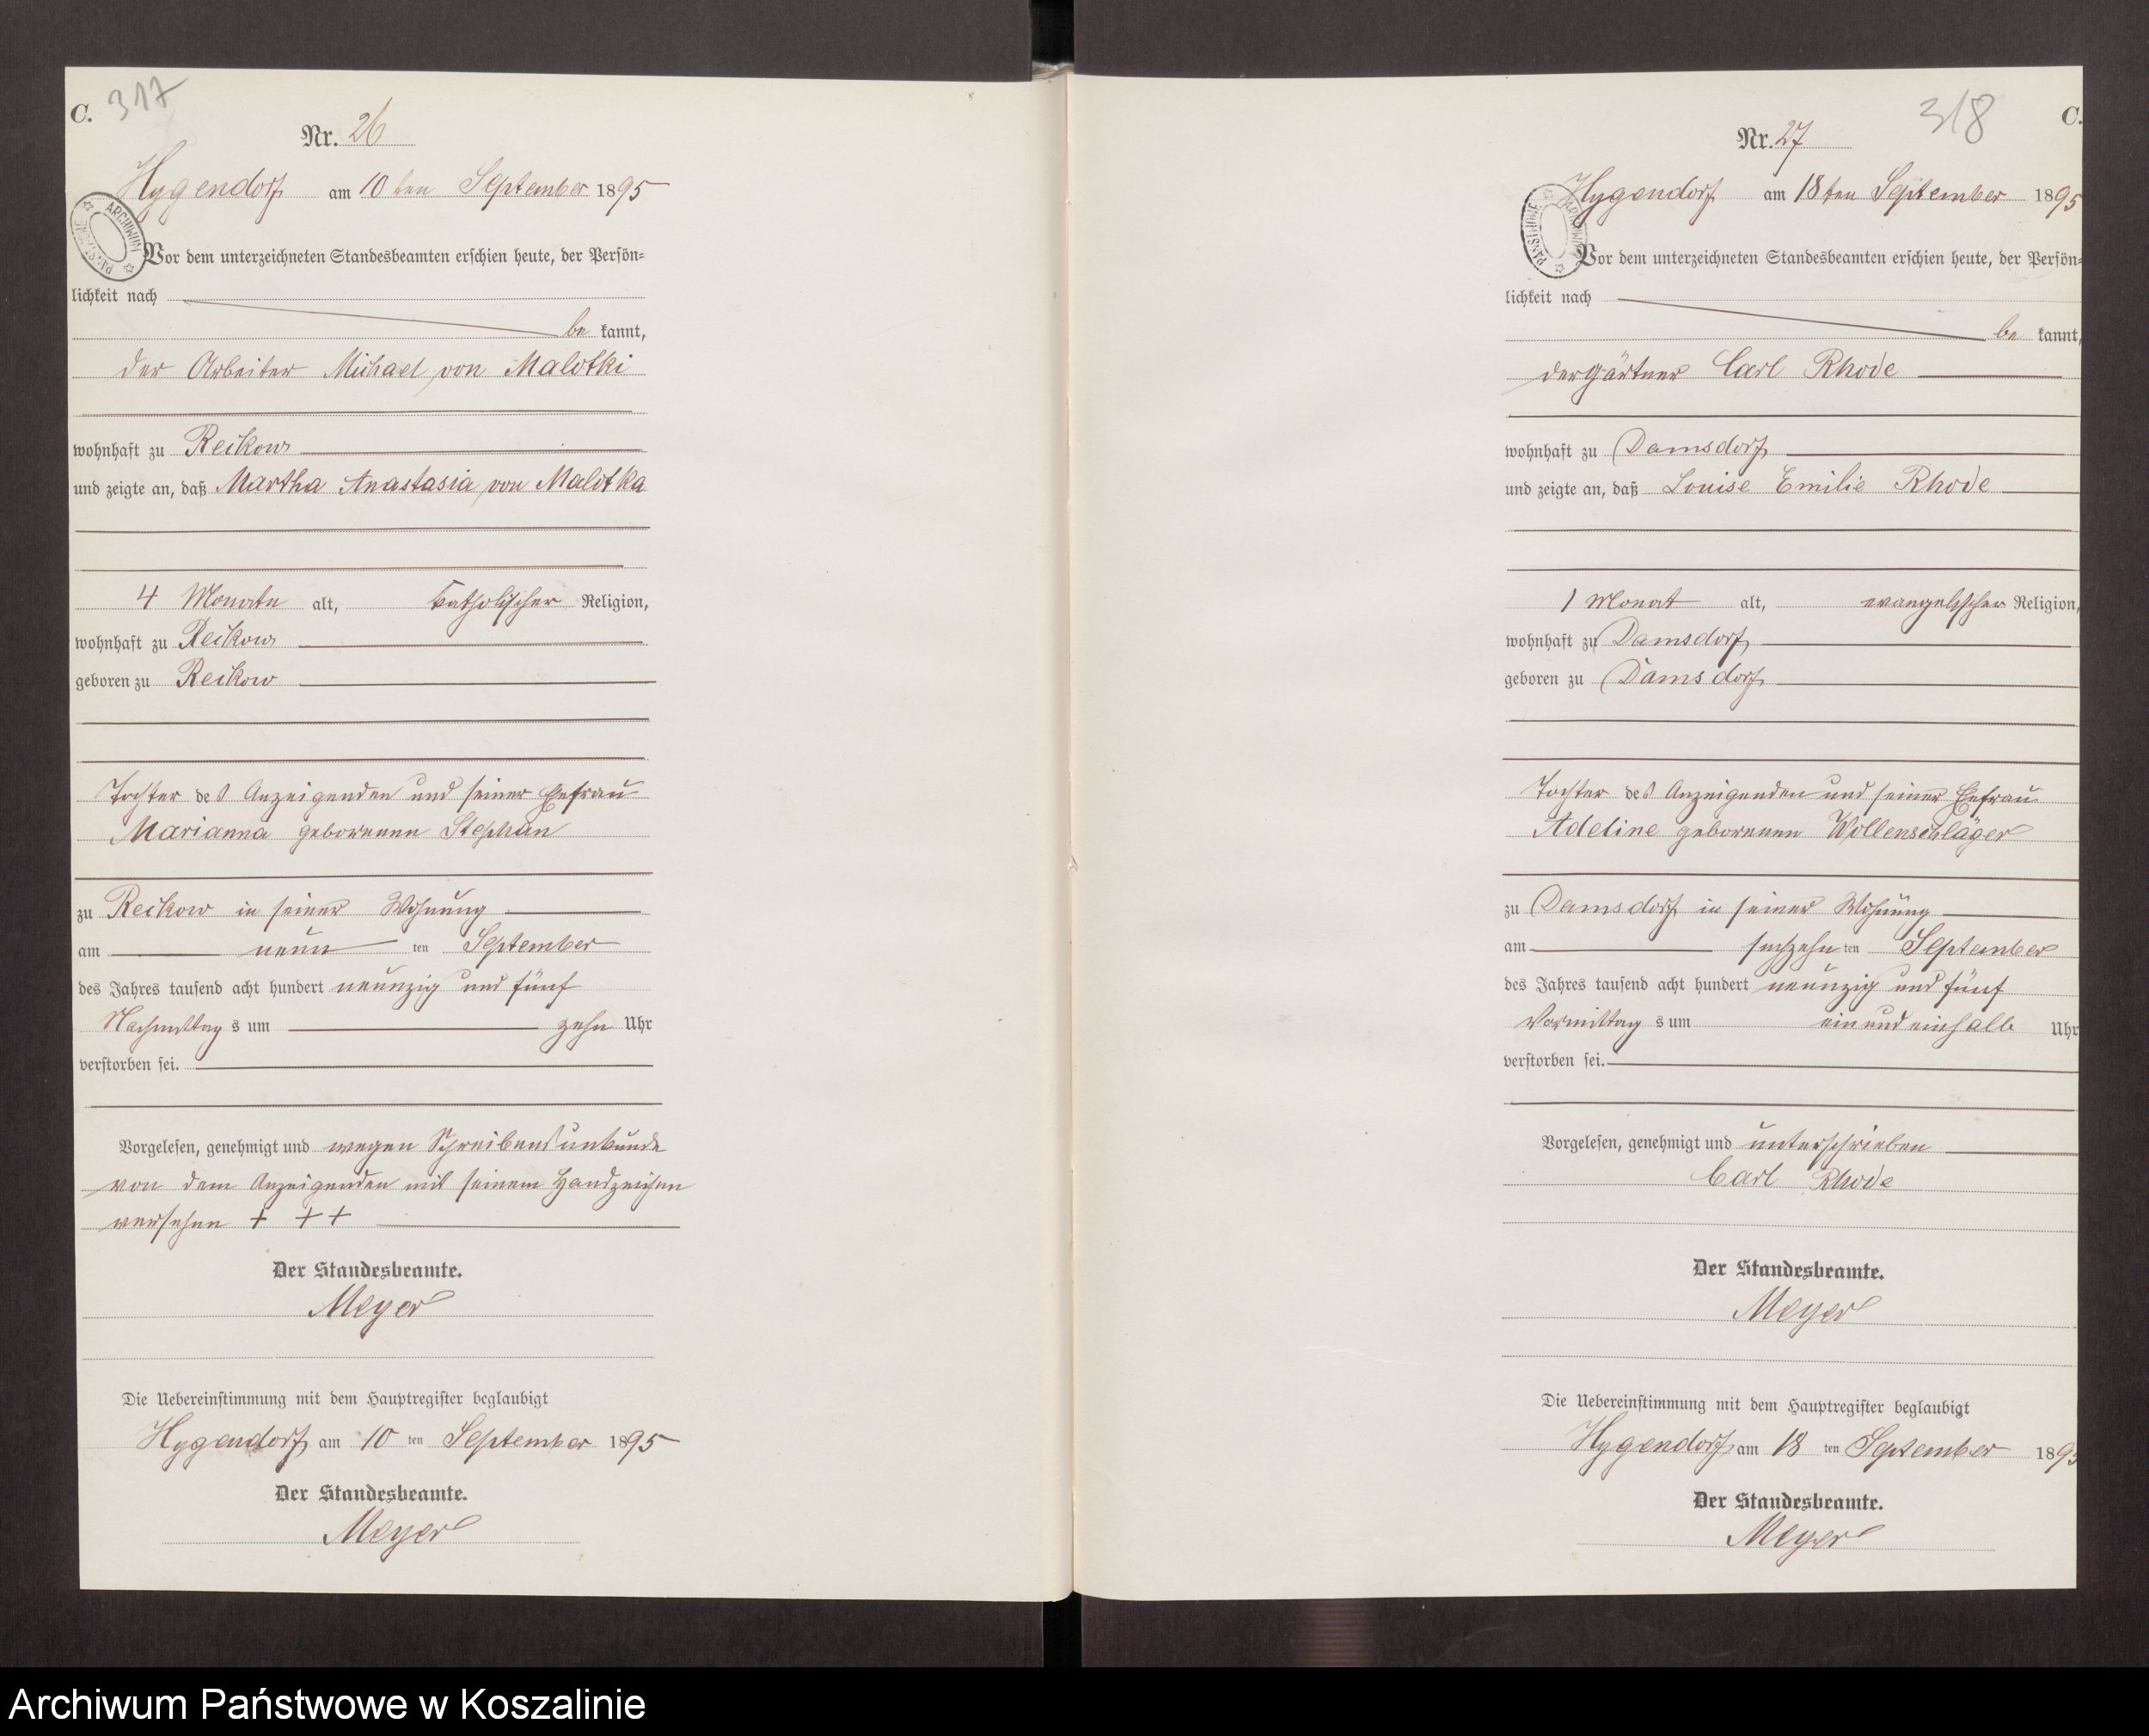 C. 317
Nr. 26
Hygendorf am 10 ten September 1895
Vor dem unterzeichneten Standesbeamten erschien heute, der Persön-
lichkeit nach
be kannt,
der Arbeiter Michael von Malotki
wohnhaft zu Reckow
und zeigte an, daß Martha Anastasia von Malotka
4 Monate alt, katholischer Religion,
wohnhaft zu Reckow
geboren zu Reckow
Tochter des Anzeigenden und seiner Ehefrau
Marianna geborenen Stephan
zu Reckow in seiner Wohnung
am neun ten September
des Jahres tausend acht hundert neunzig und fünf
Nachmittag s um zehn Uhr
verstorben sei.
Vorgelesen, genehmigt und wegen Schreibensunkunde
von dem Anzeigenden mit seinem Handzeichen
versehen + + +
Der Standesbeamte.
Meyer
Die Uebereinstimmung mit dem Hauptregister beglaubigt
Hygendorf am 10 ten September 1895
Der Standesbeamte.
Meyer
318 C.
Nr. 27
Hygendorf am 18 ten September 1895
Vor dem unterzeichneten Standesbeamten erschien heute, der Persön-
lichkeit nach
be kannt,
der Gärtner Carl Rhode
wohnhaft zu Damsdorf
und zeigte an, daß Louise Emilie Rhode
1 Monat alt, evangelischer Religion,
wohnhaft zu Damsdorf
geboren zu Damsdorf
Tochter des Anzeigenden und seiner Ehefrau
Adeline geborenen Wollenschläger
zu Damsdorf in seiner Wohnung
am sechzehn ten September
des Jahres tausend acht hundert neunzig und fünf
Vormittag s um ein und einhalb Uhr
verstorben sei.
Vorgelesen, genehmigt und unterschrieben
Carl Rhode
Der Standesbeamte.
Meyer
Die Uebereinstimmung mit dem Hauptregister beglaubigt
Hygendorf am 18 ten September 1895
Der Standesbeamte.
Meyer
Archiwum Państwowe w Koszalinie